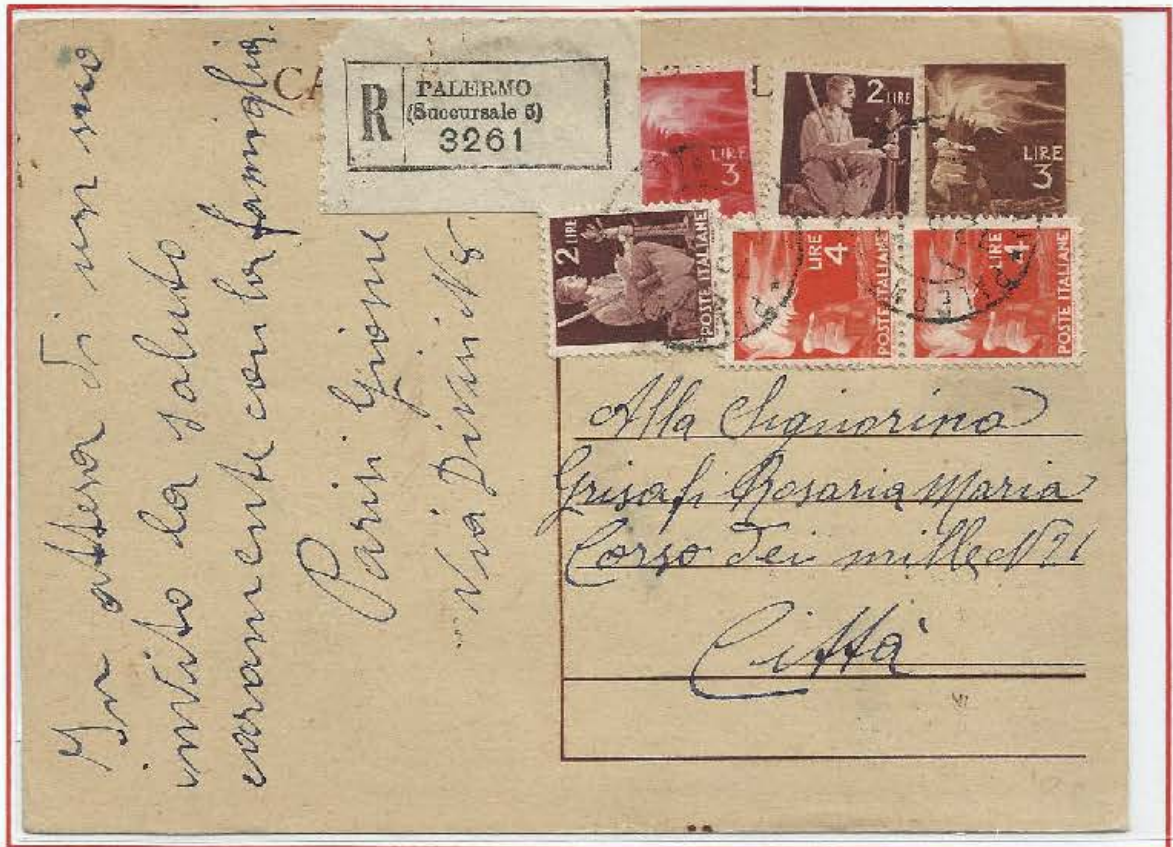 CA
L
R
PALERMO
(Succursale 5)
3261
LIRE
3
2 LIRE
LIRE
3
2 LIRE
POSTE ITALIANE
LIRE
4
POSTE ITALIANE
LIRE
4
POSTE ITALIANE
In attesa di un suo
invito la saluto
caramente con la famiglia.
Parisi Gione
Via Divini N 8
Alla Signorina
Grisafi Rosaria Maria
Corso dei mille N 21
Città